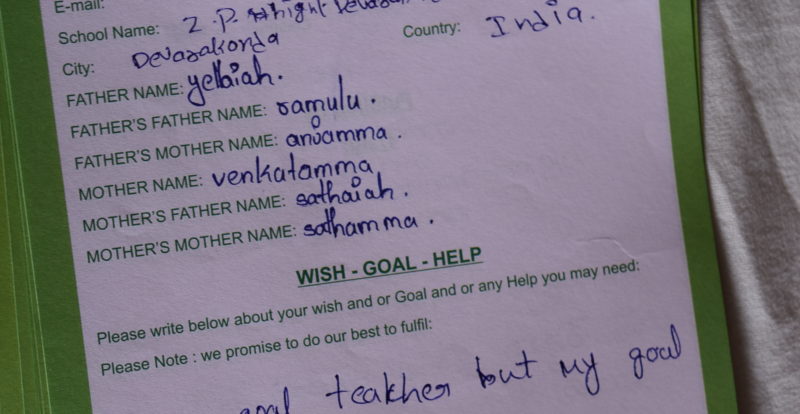 E-mail:
School Name: Z.P.
City: Devarakonda Country: India.
FATHER NAME: yellaiah.
FATHER'S FATHER NAME: ramulu.
FATHER'S MOTHER NAME: anjamma.
MOTHER NAME: venkatamma
MOTHER'S FATHER NAME: sathaiah.
MOTHER'S MOTHER NAME: sathamma.
WISH - GOAL - HELP
Please write below about your wish and or Goal and or any Help you may need:
Please Note : we promise to do our best to fulfil:
goal teakher but my goal